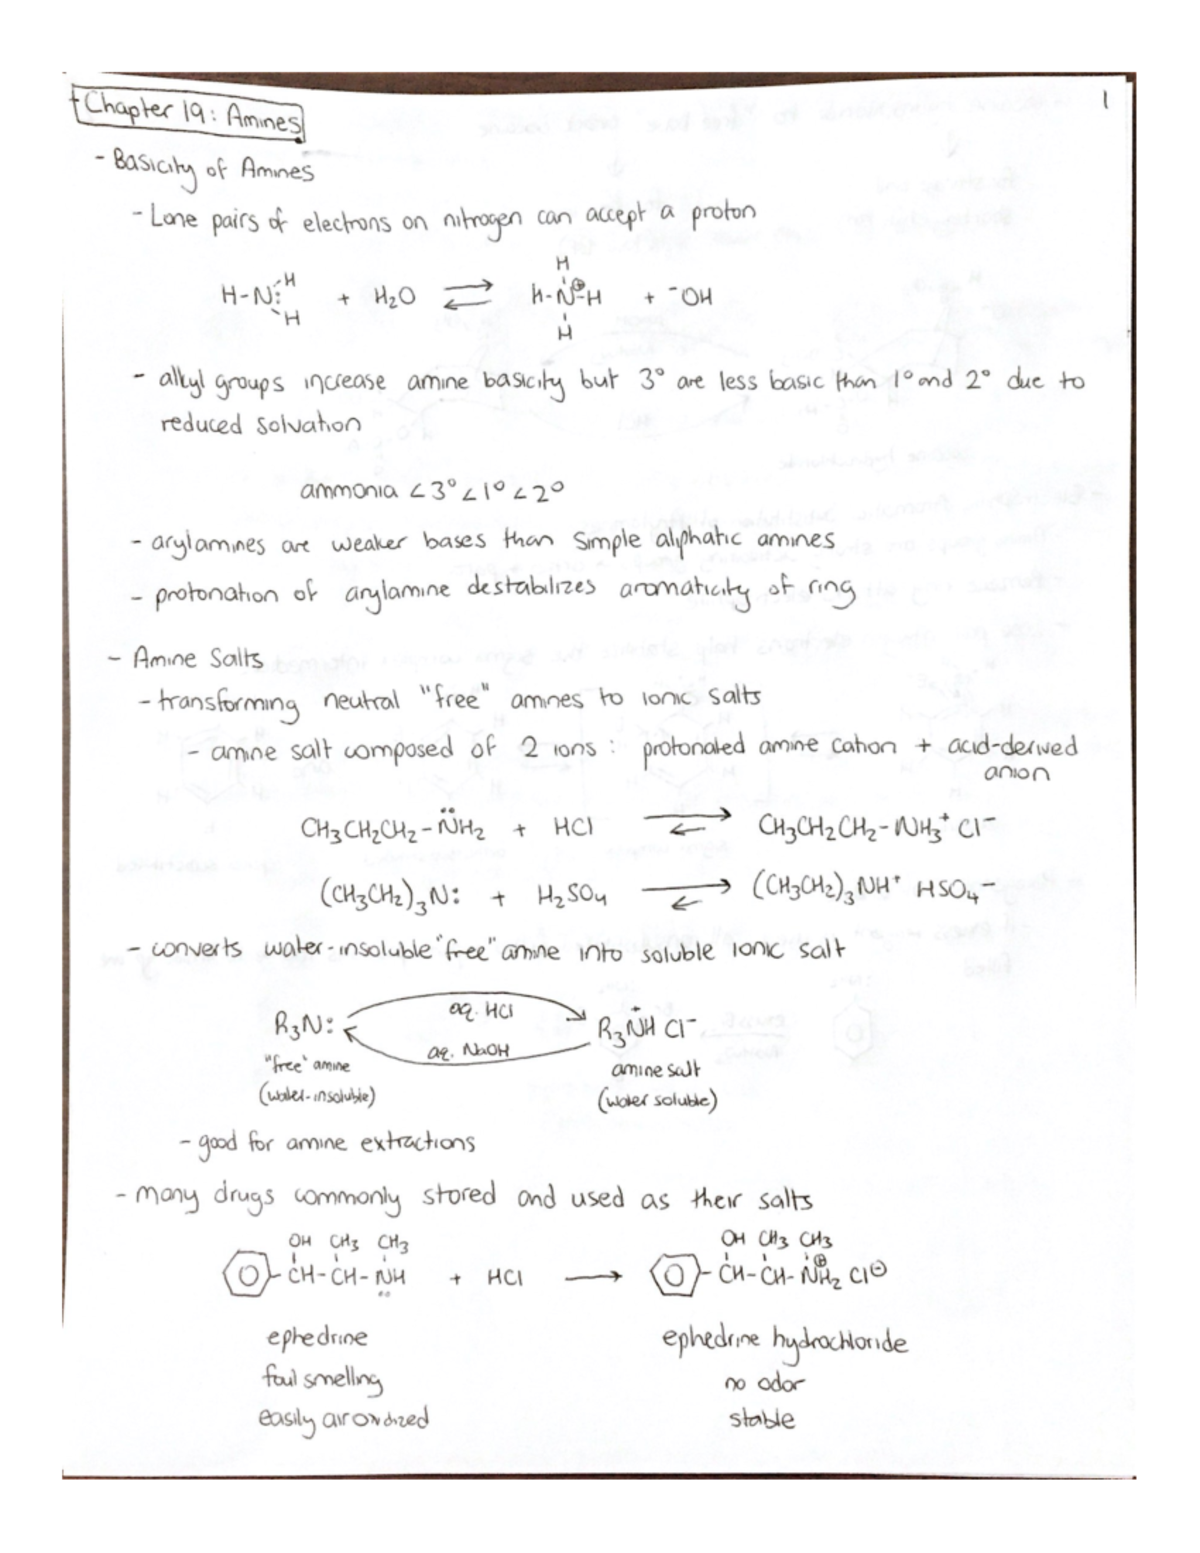 Chapter 19: Amines
1
- Basicity of Amines
- Lone pairs of electrons on nitrogen can accept a proton
H-N: H H + H₂O ⇌ H-N⊕-H H H + ⁻OH
- alkyl groups increase amine basicity but 3° are less basic than 1° and 2° due to
reduced solvation
ammonia < 3° < 1° < 2°
- arylamines are weaker bases than simple aliphatic amines
- protonation of arylamine destabilizes aromaticity of ring
- Amine Salts
- transforming neutral "free" amines to ionic salts
- amine salt composed of 2 ions : protonated amine cation + acid-derived
anion
CH₃CH₂CH₂-N̈H₂ + HCl ⇌ CH₃CH₂CH₂-NH₃⁺ Cl⁻
(CH₃CH₂)₃N: + H₂SO₄ ⇌ (CH₃CH₂)₃NH⁺ HSO₄⁻
- converts water-insoluble "free" amine into soluble ionic salt
aq. HCl
R₃N: R₃N⁺H Cl⁻
aq. NaOH
"free" amine amine salt
(water-insoluble) (water soluble)
- good for amine extractions
- many drugs commonly stored and used as their salts
OH CH₃ CH₃ OH CH₃ CH₃
-CH-CH-NH + HCl → -CH-CH-NH₂ ⊕ Cl⊖
ephedrine ephedrine hydrochloride
foul smelling no odor
easily air oxidized stable